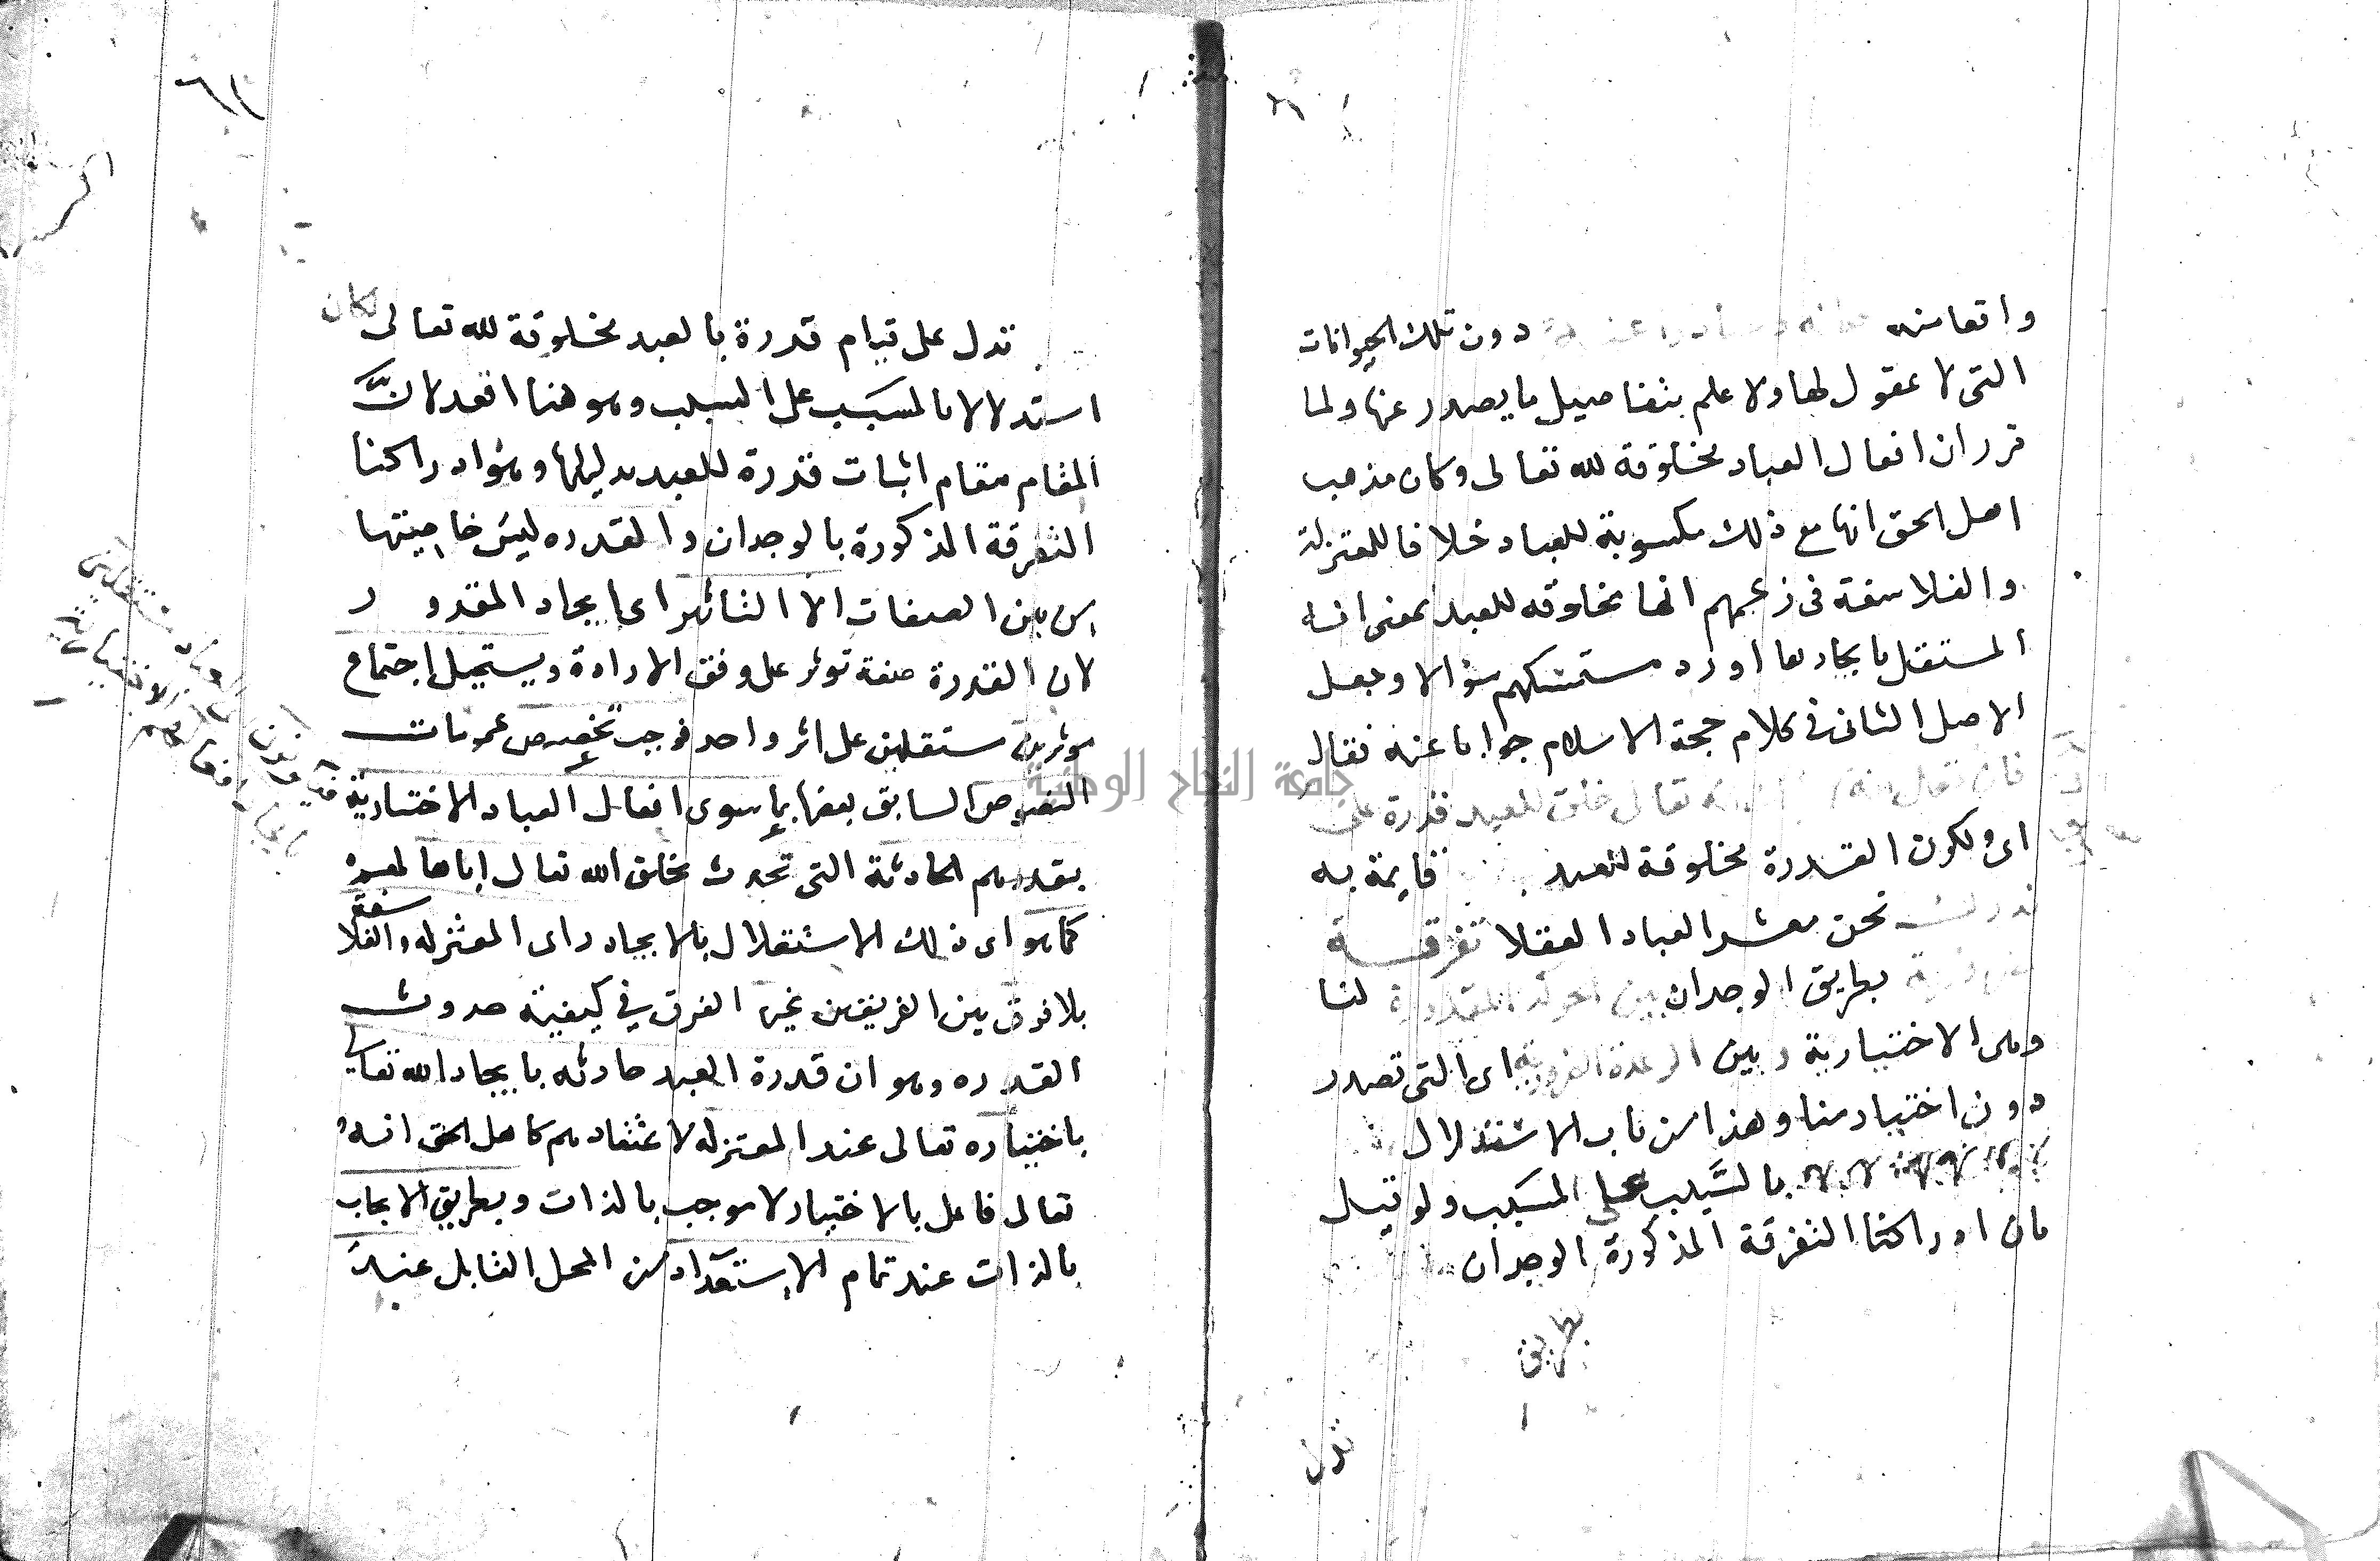 واقعا منه دون تلك الحيوانات
التى لا عقول لها ولا علم بتفاصيل ما يصدر عنها ولما
قرر ان افعال العباد مخلوقة لله تعالى وكان مذهب
اهل الحق انها مع ذلك مكسوبة للعباد خلافا للمعتزلة
والفلاسفة فى زعمهم انها مخلوقه للعبد بمعنى انه
المستقل بايجادها اورد متمسكهم سؤالا وجعل
الاصل الثانى فى كلام حجة الاسلام جوابا عنه فقال
فان تعالى خلق للعبد قدرة على
اى ولكون القدرة مخلوقة للعبد قايمة به
ندرك نحن معشر العباد العقلا تفرقة
بطريق الوجدان بين الحركة المقدورة لنا
وهى الاختيارية وبين الرعدة الضرورية اى التى تصدر
دون اختيار منا وهذا من باب الاستدلال
بالسبب على المسبب ولو قيل
بان ادراكنا التفرقة المذكورة الوجدان
بطريق
تدل
تدل على قيام قدرة بالعبد مخلوقة لله تعالى لكان
استدلالا بالمسبب على السبب وهو هنا اقعد لانَّ
المقام مقام اثبات قدرة للعبد بدليلها وهو ادراكنا
التفرقة المذكورة بالوجدان والقدره ليس خاصيتها
من بين الصفات الا التاثير اى ايجاد المقدور
لان القدرة صفة توثر على وفق الارادة ويستحيل اجتماع
موثرين مستقلين على اثر واحد فوجب تخصيص عمومات
النصوص السابق بعضها بما سوى افعال العباد الاختيارية
بقدرهم الحادثة التى تحدث بخلق الله تعالى اياها لهم
كما هو اى ذلك الاستقلال بالايجاد راى المعتزله والفلاسفة
بلا فرق بين الفريقين غير الفرق في كيفية حدوث
القدره وهو ان قدرة العبد حادثه بايجاد الله تعالى
باختياره تعالى عند المعتزله لاعتقادهم كاهل الحق انه
تعالى فاعل بالاختيار لا موجب بالذات وبطريق الايجاب
بالذات عند تمام الاستعداد من المحل القابل عند
جامعة النجاح الوطنية